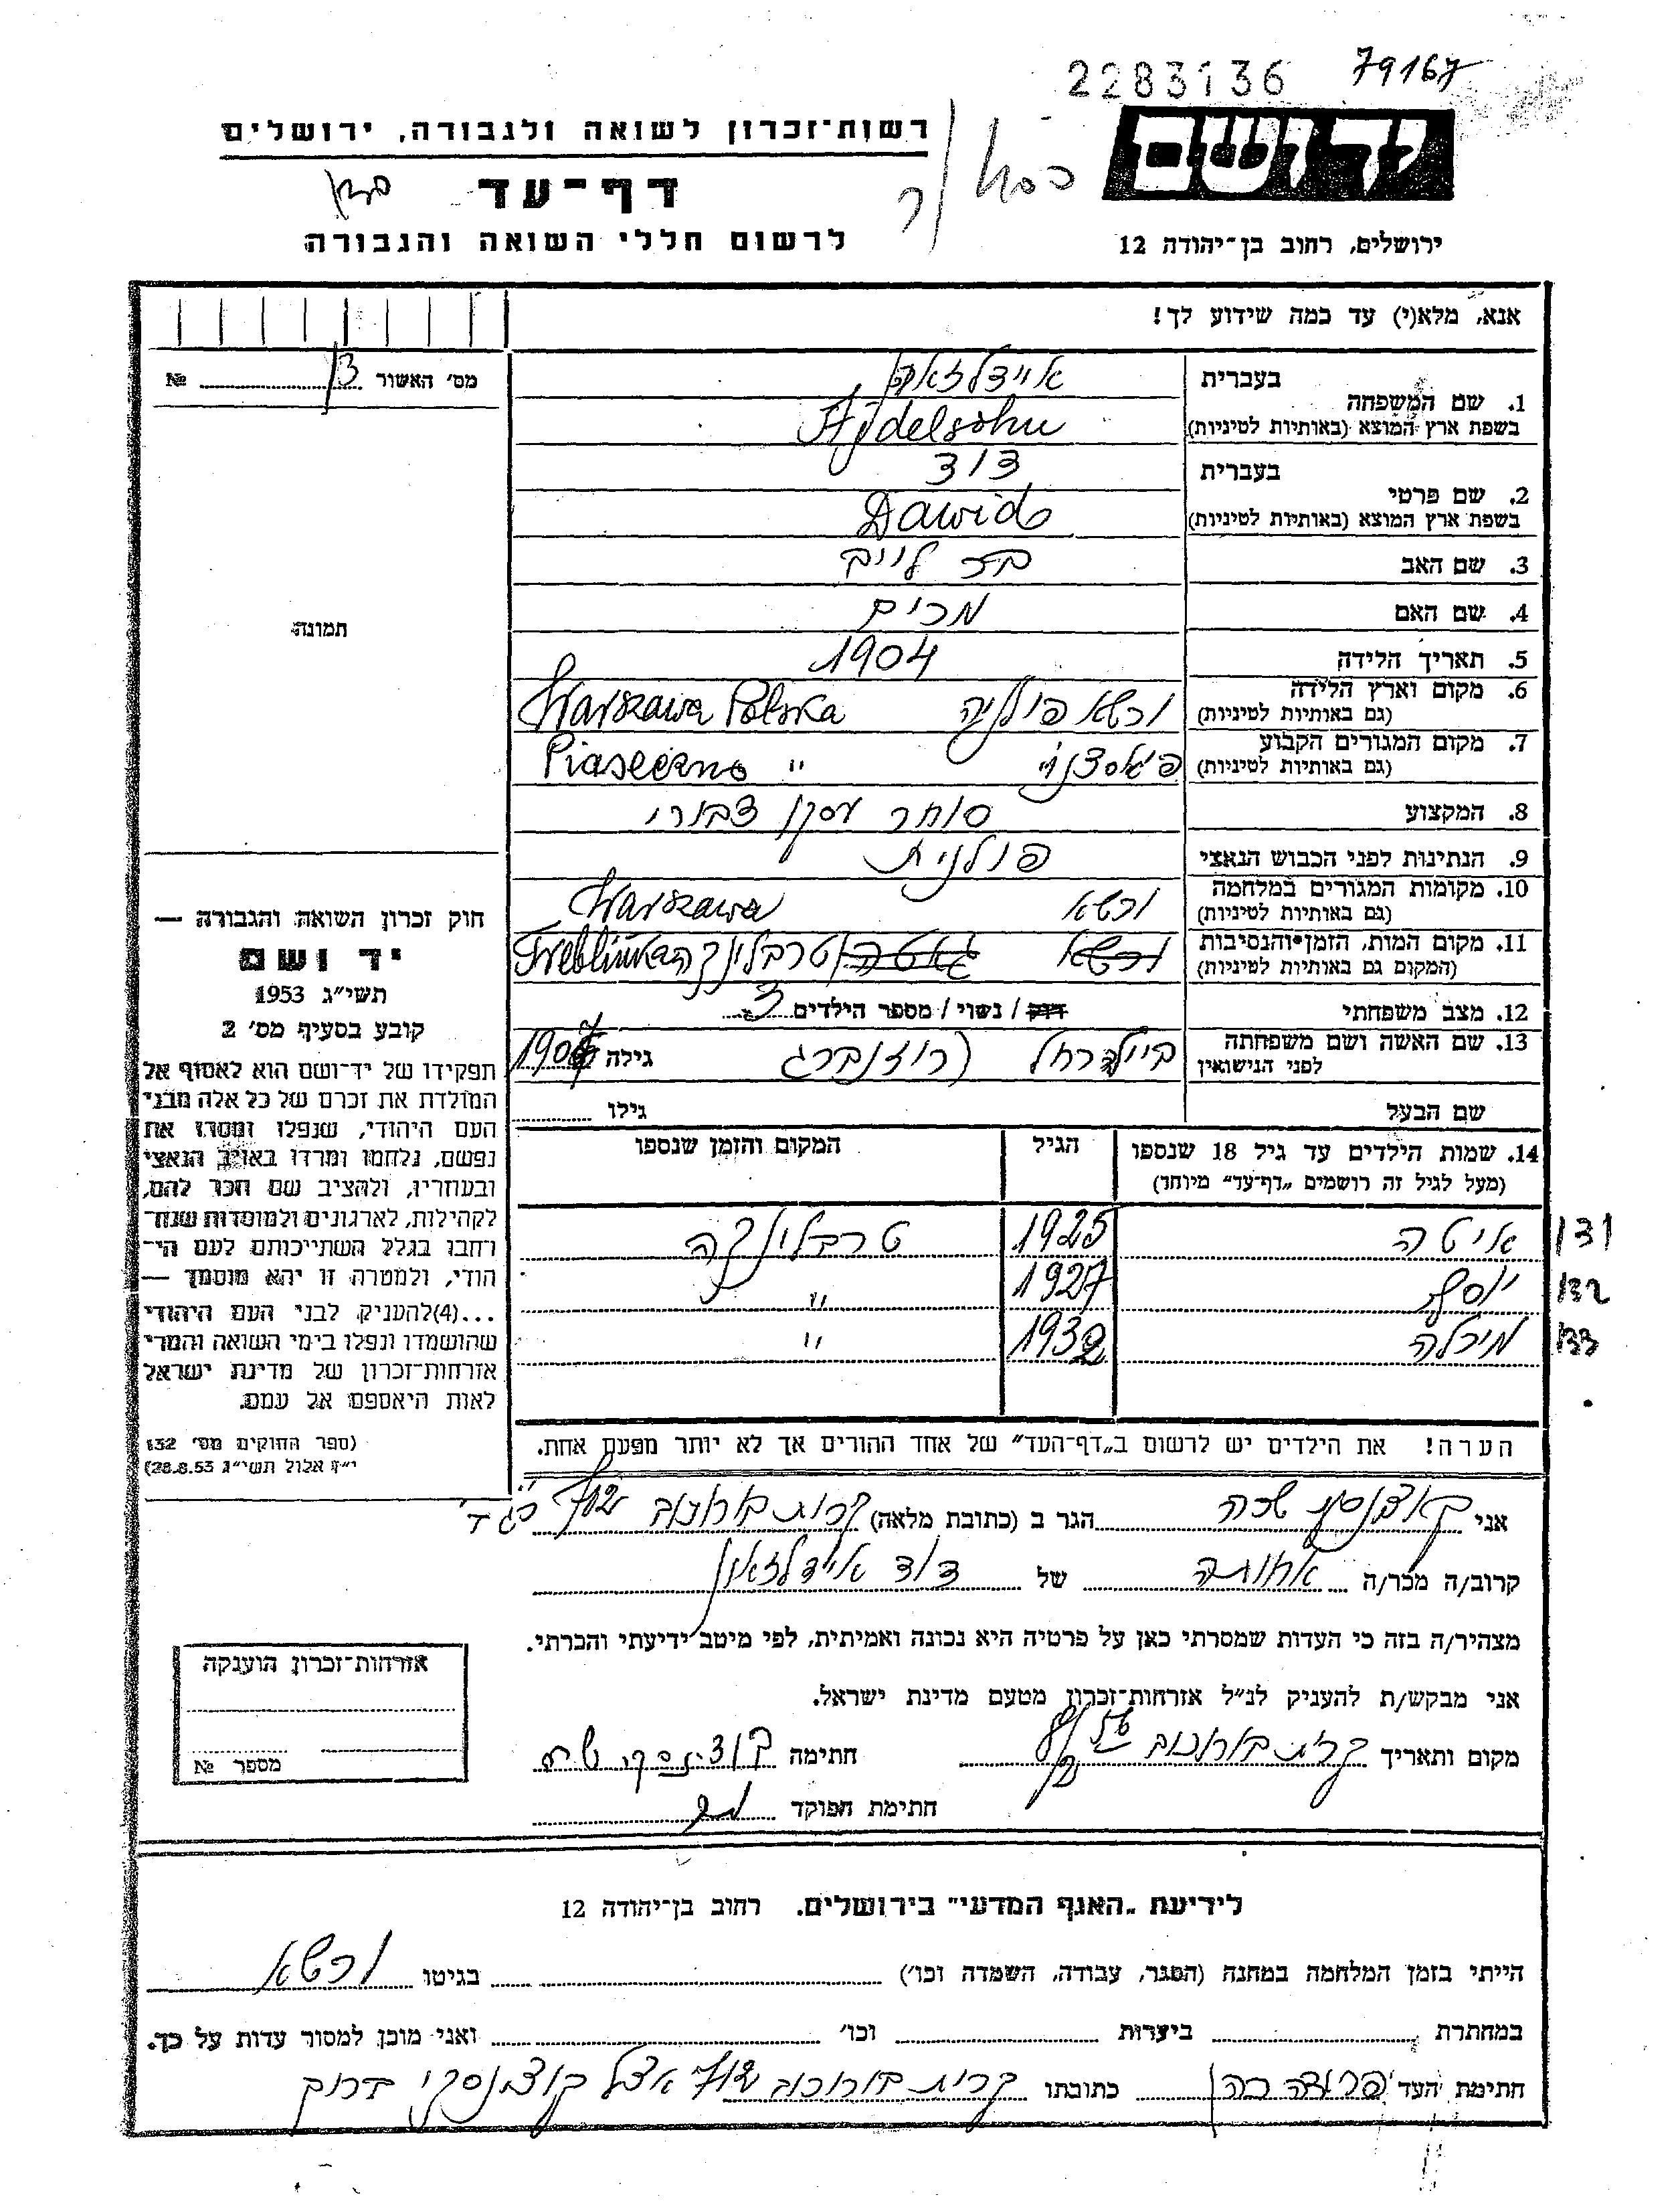 2283136 79167
יד ושם
רשות־זכרון לשואה ולגבורה, ירושלים
דף־עד
לרשום חללי השואה והגבורה
ירושלים, רחוב בן־יהודה 12
אנא, מלא(י) עד כמה שידוע לך!
מס' האשור № 13
תמונה
1. שם המשפחה בעברית
בשפת ארץ המוצא (באותיות לטיניות) Ajdelsohn
2. שם פרטי בעברית דוד
בשפת ארץ המוצא (באותיות לטיניות) Dawid
3. שם האב לייב
4. שם האם מרים
5. תאריך הלידה 1904
6. מקום וארץ הלידה ורשא פולניה Warszawa Polska
(גם באותיות לטיניות)
7. מקום המגורים הקבוע Piaseczno "
(גם באותיות לטיניות)
8. המקצוע סוחר עסקן צבורי
9. הנתינות לפני הכבוש הנאצי פולנית
10. מקומות המגורים במלחמה ורשא Warszawa
(גם באותיות לטיניות)
11. מקום המות, הזמן והנסיבות ורשא גאטה טרבלינקה Treblinka
(המקום גם באותיות לטיניות)
12. מצב משפחתי רוק / נשוי / מספר הילדים 3
13. שם האשה ושם משפחתה ביילה רחל (רוזנברג גילה
לפני הנישואין
שם הבעל גילו
14. שמות הילדים עד גיל 18 שנספו הגיל המקום והזמן שנספו
(מעל לגיל זה רושמים „דף־עד" מיוחד)
איטה 1925 טרבלינקה 131
יוסף 1927 " 132
מיכלה 1932 " 133
הערה! את הילדים יש לרשום ב„דף־העד" של אחד ההורים אך לא יותר מפעם אחת.
חוק זכרון השואה והגבורה —
יד ושם
תשי"ג 1953
קובע בסעיף מס' 2
תפקידו של יד־ושם הוא לאסוף אל
המולדת את זכרם של כל אלה מבני
העם היהודי, שנפלו ומסרו את
נפשם, נלחמו ומרדו באויב הנאצי
ובעוזריו, ולהציב שם וזכר להם,
לקהילות, לארגונים ולמוסדות שנח־
רחבו בגלל השתייכותם לעם הי־
הודי, ולמטרה זו יהא מוסמך —
...(4)להעניק לבני העם היהודי
שהושמדו ונפלו בימי השואה והמרי
אזרחות־זכרון של מדינת ישראל
לאות היאספם אל עמם.
(ספר החוקים מס' 132
י"ז אלול תשי"ג 28.8.53)
אני שרה הגר ב (כתובת מלאה) קרית בורוכוב
קרוב/ה מכר/ה אחותה של דוד איידלזאון
מצהיר/ה בזה כי העדות שמסרתי כאן על פרטיה היא נכונה ואמיתית, לפי מיטב ידיעתי והכרתי.
אני מבקש/ת להעניק לנ"ל אזרחות־זכרון מטעם מדינת ישראל.
מקום ותאריך קרית בורוכוב חתימה
חתימת הפוקד
אזרחות־זכרון הוענקה
מספר №
לידיעת „האגף המדעי" בירושלים. רחוב בן־יהודה 12
הייתי בזמן המלחמה במחנה (הסגר, עבודה, השמדה וכו') בגיטו ורשא
במחתרת ביערות וכו' ואני מוכן למסור עדות על כך.
חתימת העד כתובתו קרית בורוכוב אצל